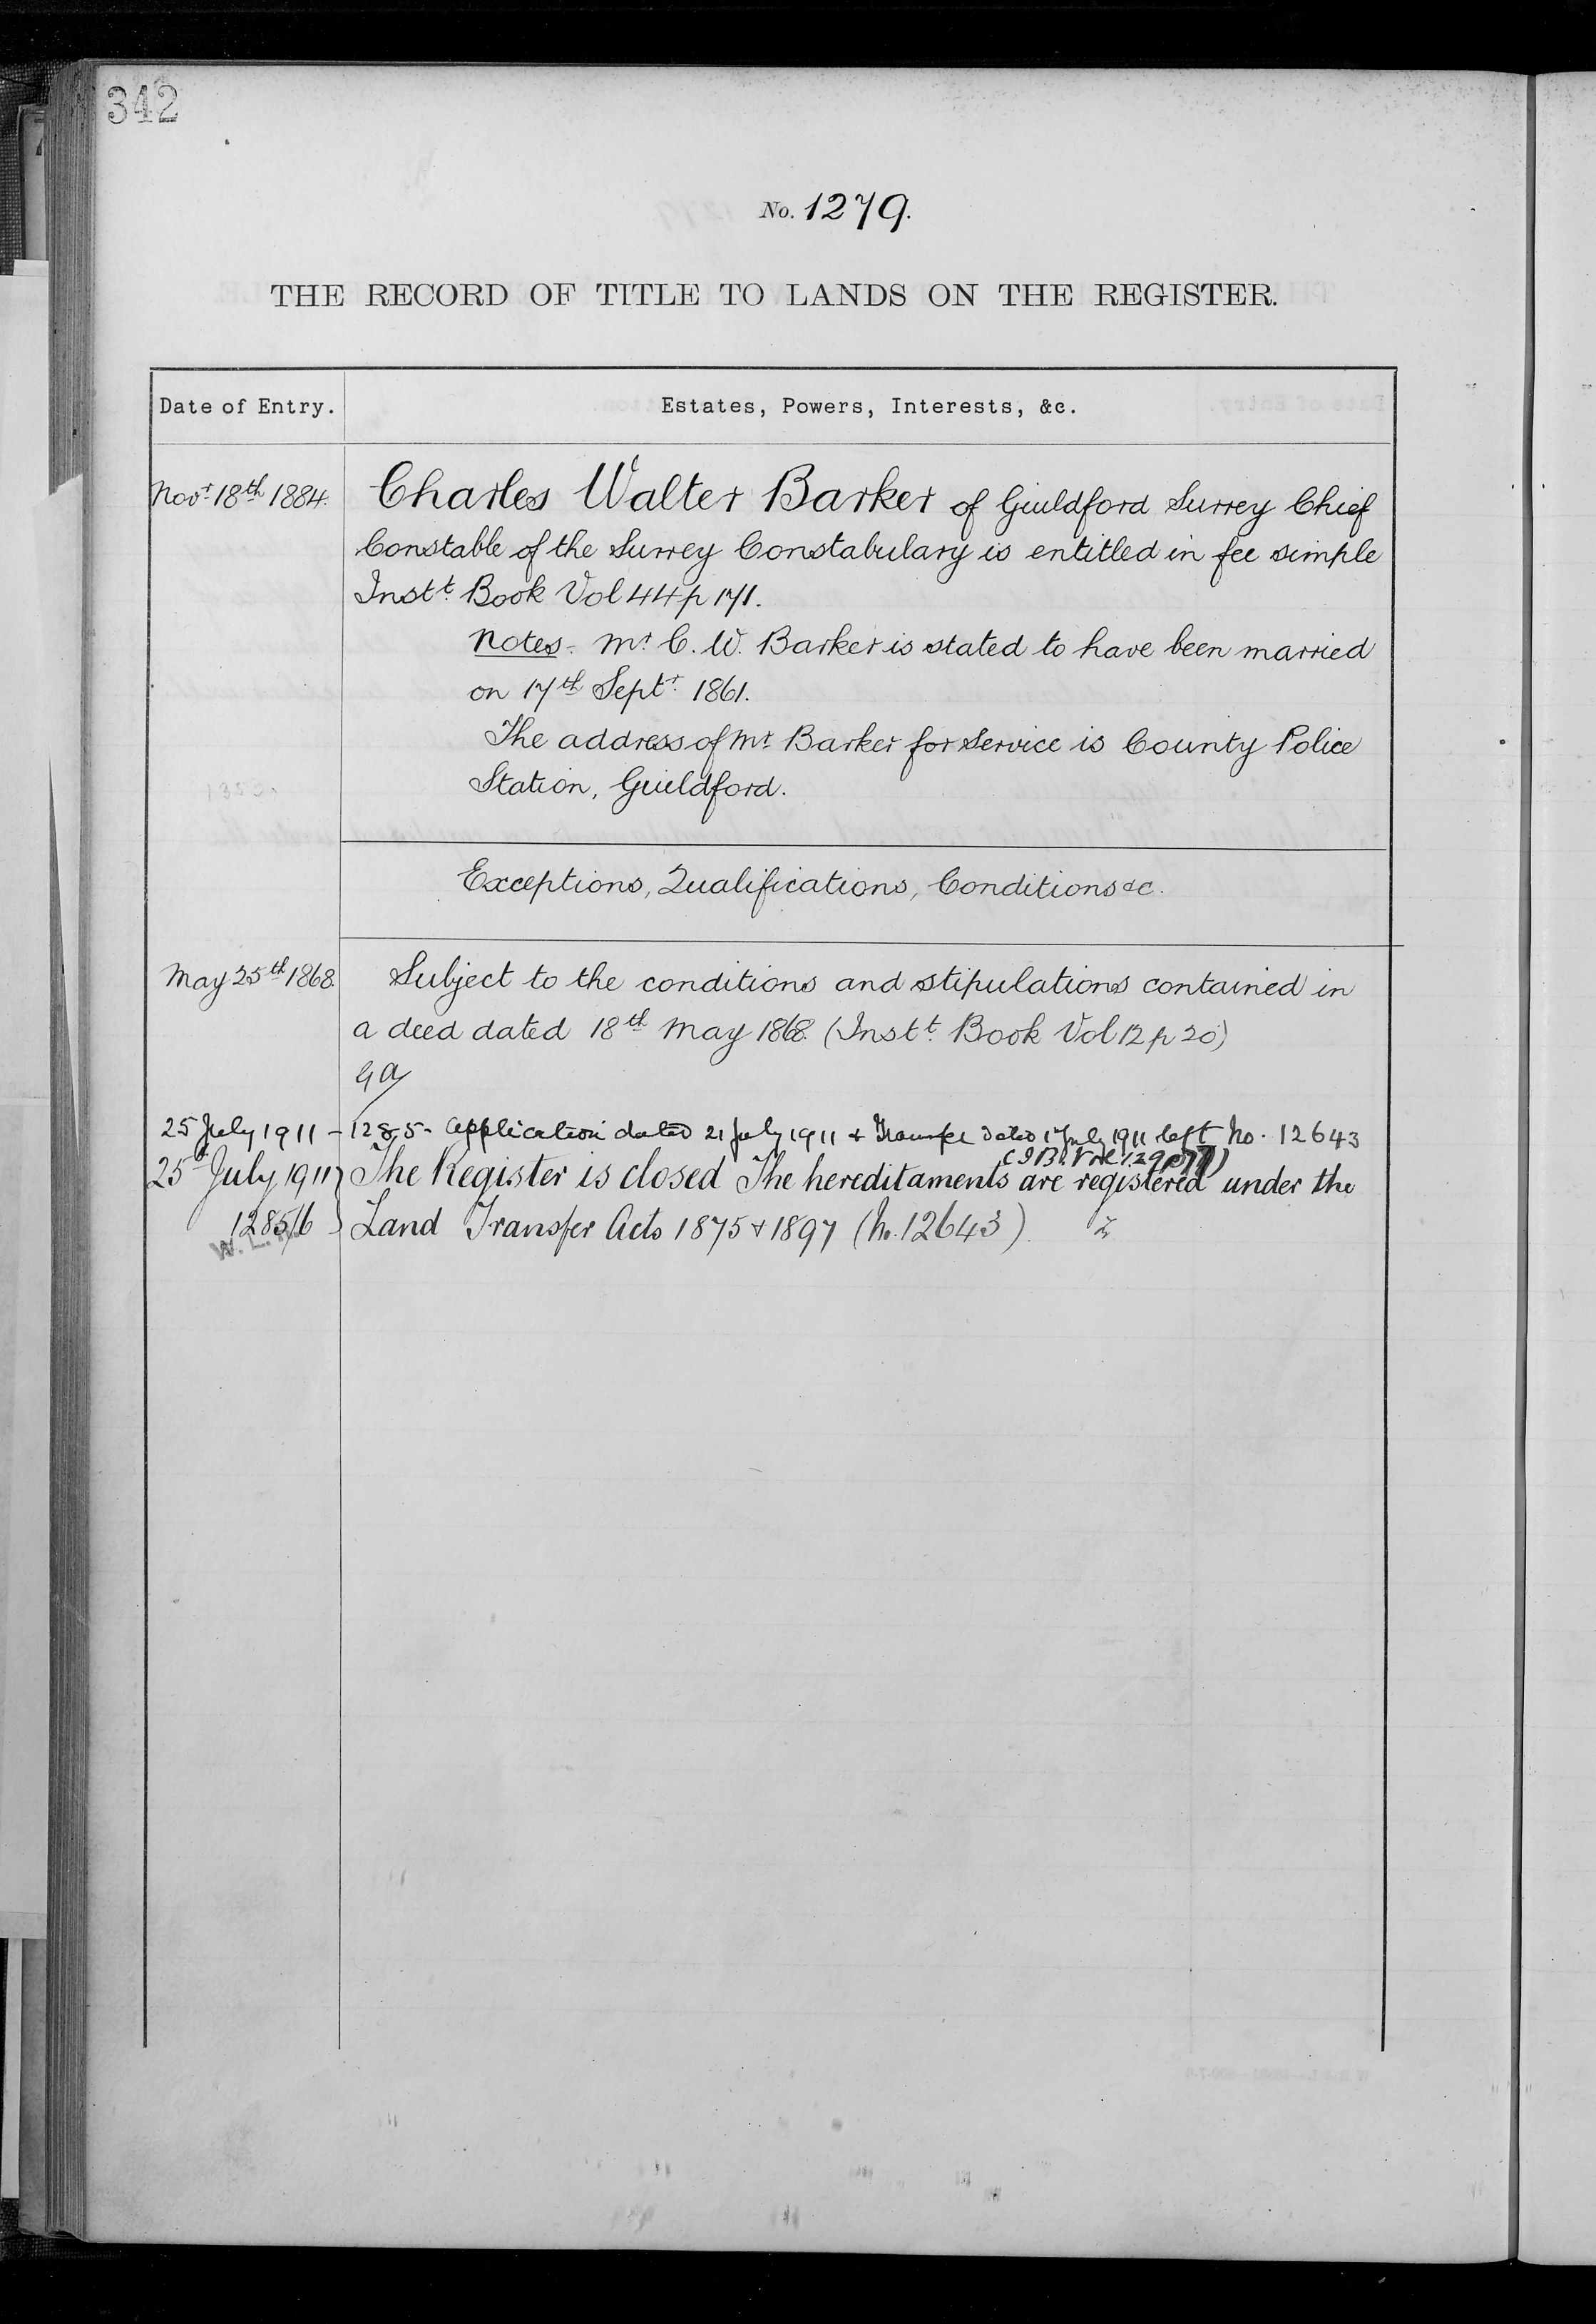 342
No. 1279.
THE RECORD OF TITLE TO LANDS ON THE REGISTER.
Date of Entry.
Estates, Powers, Interests, &c.
Novr. 18th 1884.
Charles Walter Barker of Guildford Surrey Chief
Constable of the Surrey Constabulary is entitled in fee simple
Instt. Book Vol 44 p 171.
Notes - Mr. C. W. Barker is stated to have been married
on 17th Septr. 1861.
The address of Mr. Barker for Service is County Police
Station, Guildford.
Exceptions, Qualifications, Conditions &c.
May 25th 1868.
Subject to the conditions and stipulations contained in
a deed dated 18th May 1868. (Instt. Book Vol 12 p 20)
25 July 1911 - 1285 - Application dated 21 July 1911 + Transfer dated 17 July 1911 left No. 12643
(I B. Vol 129 p
25 July 1911 } The Register is closed The hereditaments are registered under the
1285/6 } Land Transfer Acts 1875 + 1897 (No. 12643)